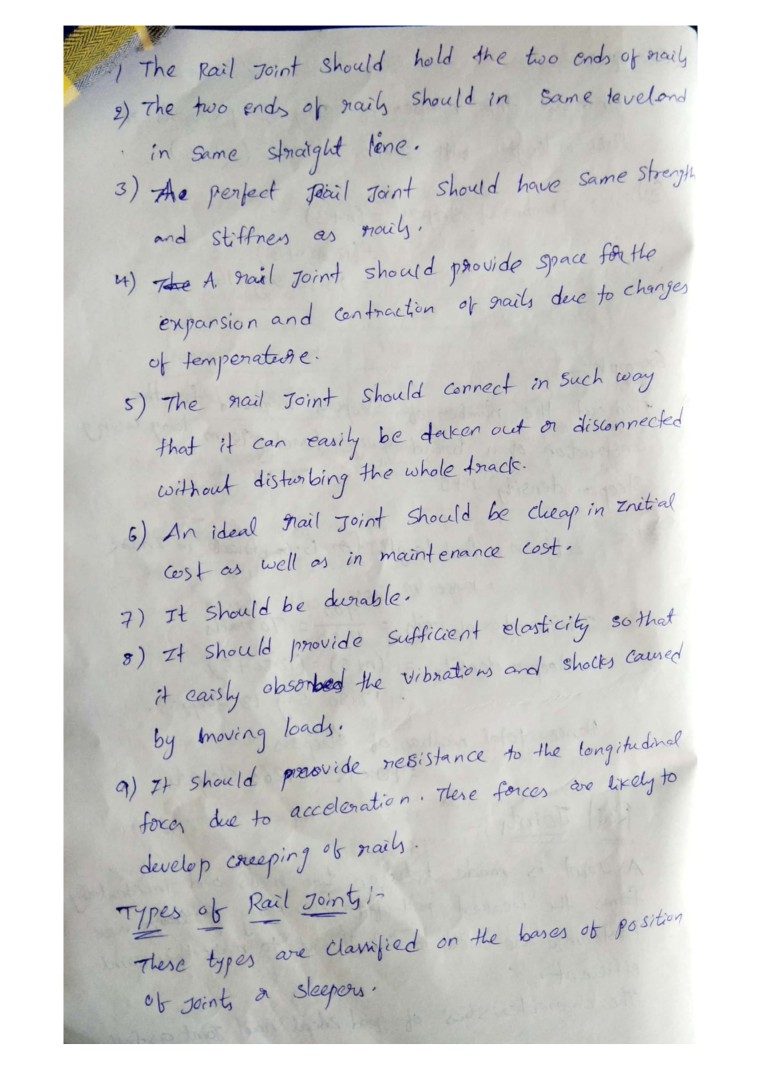 1 The Rail Joint should hold the two ends of rails
2) The two ends of rails should in same level and
in same straight line.
3) A perfect Rail Joint should have same strength
and stiffness as rails.
4) A rail Joint should provide space for the
expansion and contraction of rails due to changes
of temperature.
5) The rail Joint should connect in such way
that it can easily be taken out or disconnected
without disturbing the whole track.
6) An ideal rail Joint should be cheap in Initial
cost as well as in maintenance cost.
7) It should be durable.
8) It should provide sufficient elasticity so that
it eaisly absorbed the vibrations and shocks caused
by moving loads.
9) It should provide resistance to the longitudinal
forces due to acceleration. These forces are likely to
develop creeping of rails.
Types of Rail Joints:-
These types are classified on the bases of position
of Joints or sleepers.